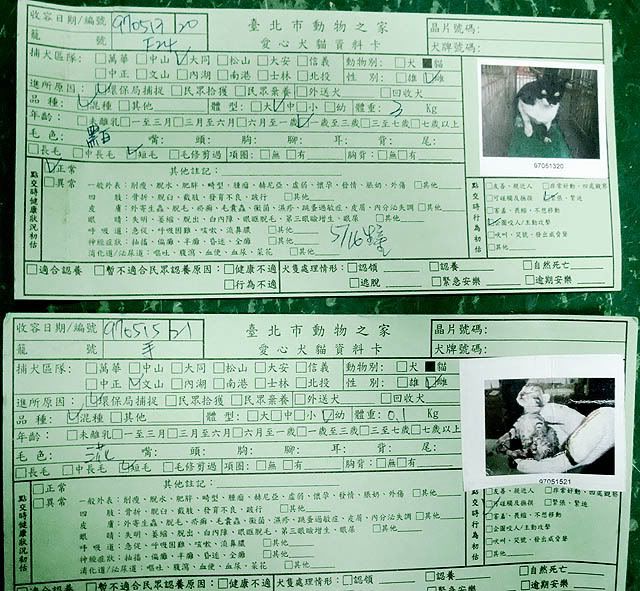 收容日期/編號 970513 20
臺北市動物之家
晶片號碼:
籠 號 F24
愛心犬貓資料卡
犬牌號碼:
捕犬區隊: □萬華 □中山 ☑大同 □松山 □大安 □信義 動物別: □犬 ■貓
□中正 □文山 □內湖 □南港 □士林 □北投 性 別: □雄 ☑雌
進所原因: ☑環保局捕捉 □民眾拾獲 □民眾棄養 □外送犬 □回收犬
品 種: ☑混種 □其他 體 型: □大 ☑中 □小 □幼 體重: 3 Kg
年齡: □未離乳 □一至三月 □三月至六月 □六月至一歲 ☑一至三歲 □三至七歲 □七歲以上
毛 色: 黑白 嘴: 頭: 腳: 耳: 背: 尾:
□長毛 □中長毛 ☑短毛 □毛修剪過 項圈: □無 □有 胸背: □無 □有
97051320
點交時健康狀況初估
☑正常
□異常
其他註記:
一般外表: 削瘦、脫水、肥胖、畸型、腫瘤、赫尼亞、虛弱、懷孕、發情、脹奶、外傷 □其他
四 肢: 骨折、脫臼、截肢、發育不良、跛行 □其他
皮 膚: 外寄生蟲、脫毛、疥癬、毛囊蟲、黴菌、濕疹、跳蚤過敏症、皮屑、內分泌失調 □其他
眼 睛: 失明、萎縮、脫出、白內障、眼瞼脫毛、第三眼瞼增生、眼屎 □其他
呼 吸 道: 急促、呼吸困難、咳嗽、流鼻膿 □其他
神經症狀: 抽搐、偏癱、半癱、昏迷、全癱 □其他
消化道/泌尿道: 嘔吐、腹瀉、血便、血尿、菜花 □其他
5/16
點交時行為初估
□友善、親近人 □非常好動、四處觀察
□可碰觸及撫摸 ☑緊張、緊迫
□害羞、畏縮、不想移動
☑企圖咬人/主動攻擊
□吠叫、哭號、發出威脅聲
□適合認養 □暫不適合民眾認養原因: □健康不適 犬隻處理情形: □認領 □認養 □自然死亡
□行為不適 □逃脫 □緊急安樂 □逾期安樂
收容日期/編號 970515 21
臺北市動物之家
晶片號碼:
籠 號 手
愛心犬貓資料卡
犬牌號碼:
捕犬區隊: □萬華 □中山 □大同 □松山 □大安 □信義 動物別: □犬 ■貓
□中正 ☑文山 □內湖 □南港 □士林 □北投 性 別: □雄 ☑雌
進所原因: ☑環保局捕捉 □民眾拾獲 □民眾棄養 □外送犬 □回收犬
品 種: ☑混種 □其他 體 型: □大 □中 □小 ☑幼 體重: 0.1 Kg
年齡: □未離乳 □一至三月 □三月至六月 □六月至一歲 □一至三歲 □三至七歲 □七歲以上
毛 色: 嘴: 頭: 腳: 耳: 背: 尾:
□長毛 □中長毛 ☑短毛 □毛修剪過 項圈: □無 □有 胸背: □無 □有
97051521
點交時健康狀況初估
□正常
□異常
其他註記:
一般外表: 削瘦、脫水、肥胖、畸型、腫瘤、赫尼亞、虛弱、懷孕、發情、脹奶、外傷 □其他
四 肢: 骨折、脫臼、截肢、發育不良、跛行 □其他
皮 膚: 外寄生蟲、脫毛、疥癬、毛囊蟲、黴菌、濕疹、跳蚤過敏症、皮屑、內分泌失調 □其他
眼 睛: 失明、萎縮、脫出、白內障、眼瞼脫毛、第三眼瞼增生、眼屎 □其他
呼 吸 道: 急促、呼吸困難、咳嗽、流鼻膿 □其他
神經症狀: 抽搐、偏癱、半癱、昏迷、全癱 □其他
消化道/泌尿道: 嘔吐、腹瀉、血便、血尿、菜花 □其他
點交時行為初估
□友善、親近人 □非常好動、四處觀察
□可碰觸及撫摸 □緊張、緊迫
□害羞、畏縮、不想移動
□企圖咬人/主動攻擊
□吠叫、哭號、發出威脅聲
□適合認養 □暫不適合民眾認養原因: □健康不適 犬隻處理情形: □認領 □認養 □自然死亡
□行為不適 □逃脫 □緊急安樂 □逾期安樂